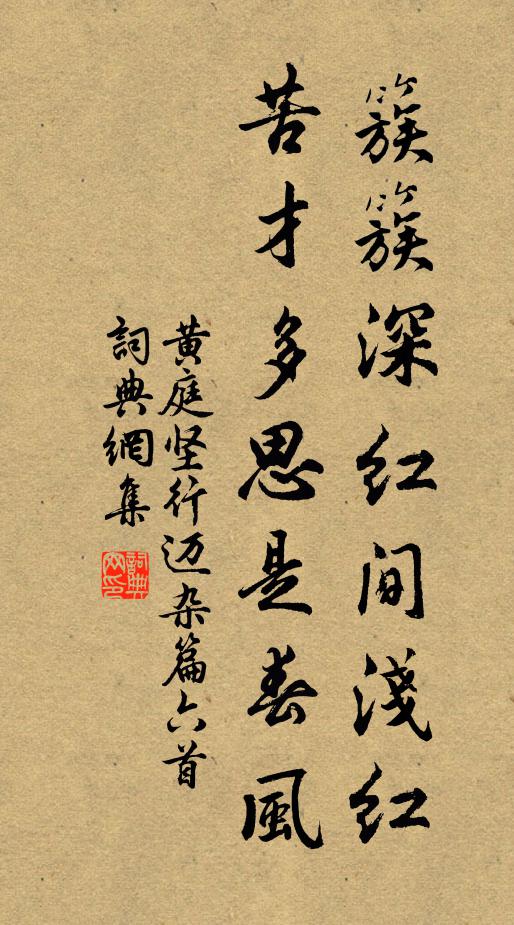 簇簇深红间淺红
苦才多思是春風
黄庭坚行迈杂篇六首
詞典網集
詞典网印